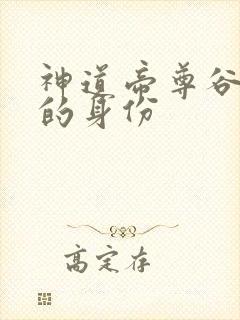 神道帝尊谷
的身份
高定存